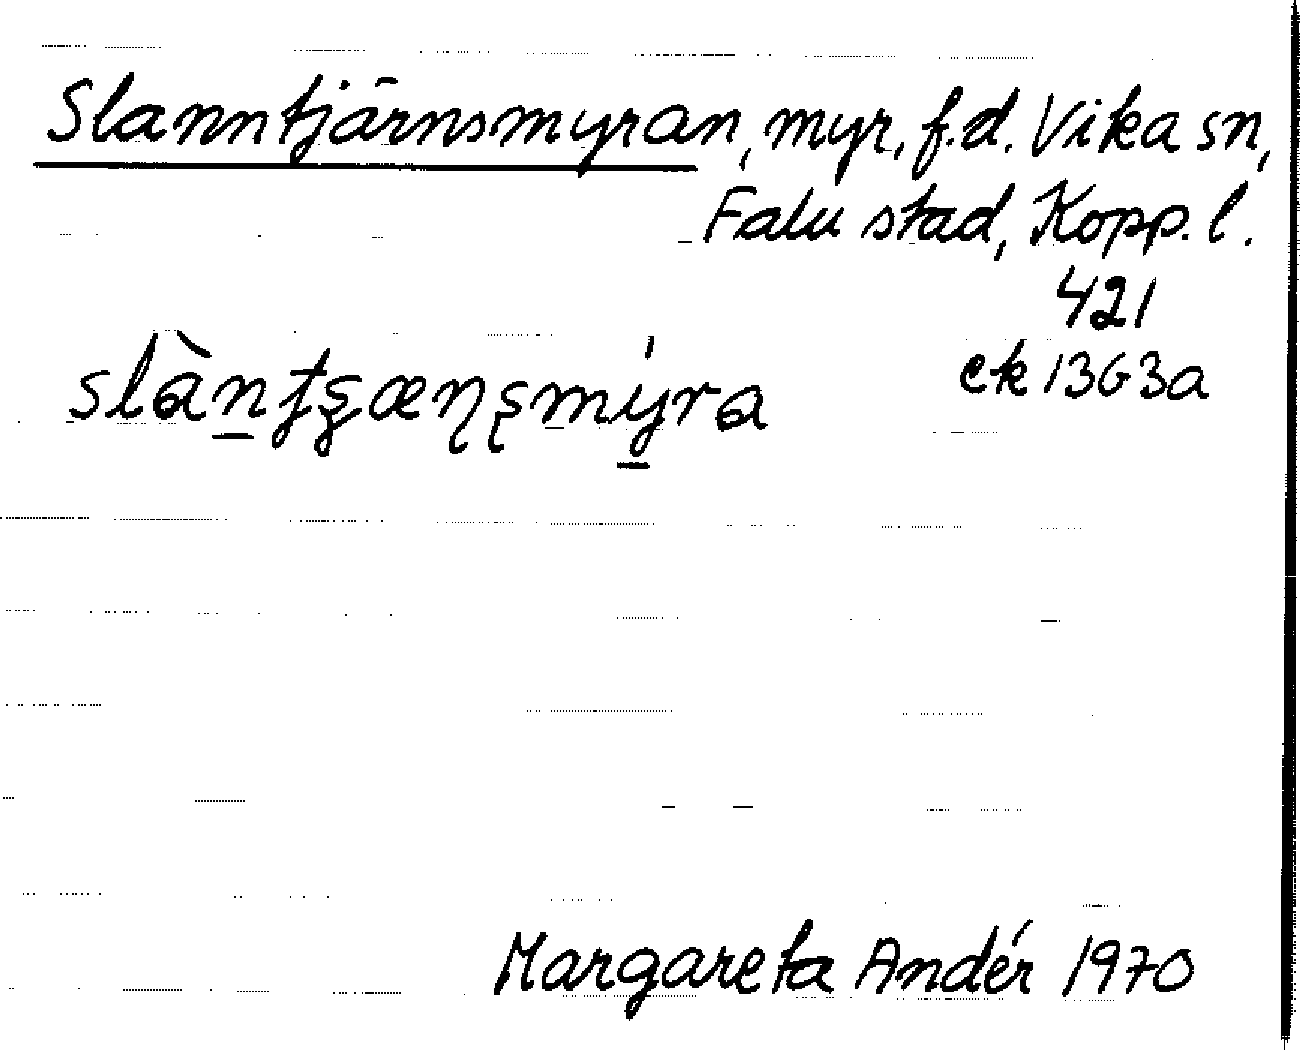 Slanntjärnsmyran, myr, f.d. Vika sn,
Falu stad, Kopp. l.
421
ek 1363a
Margareta Andér 1970